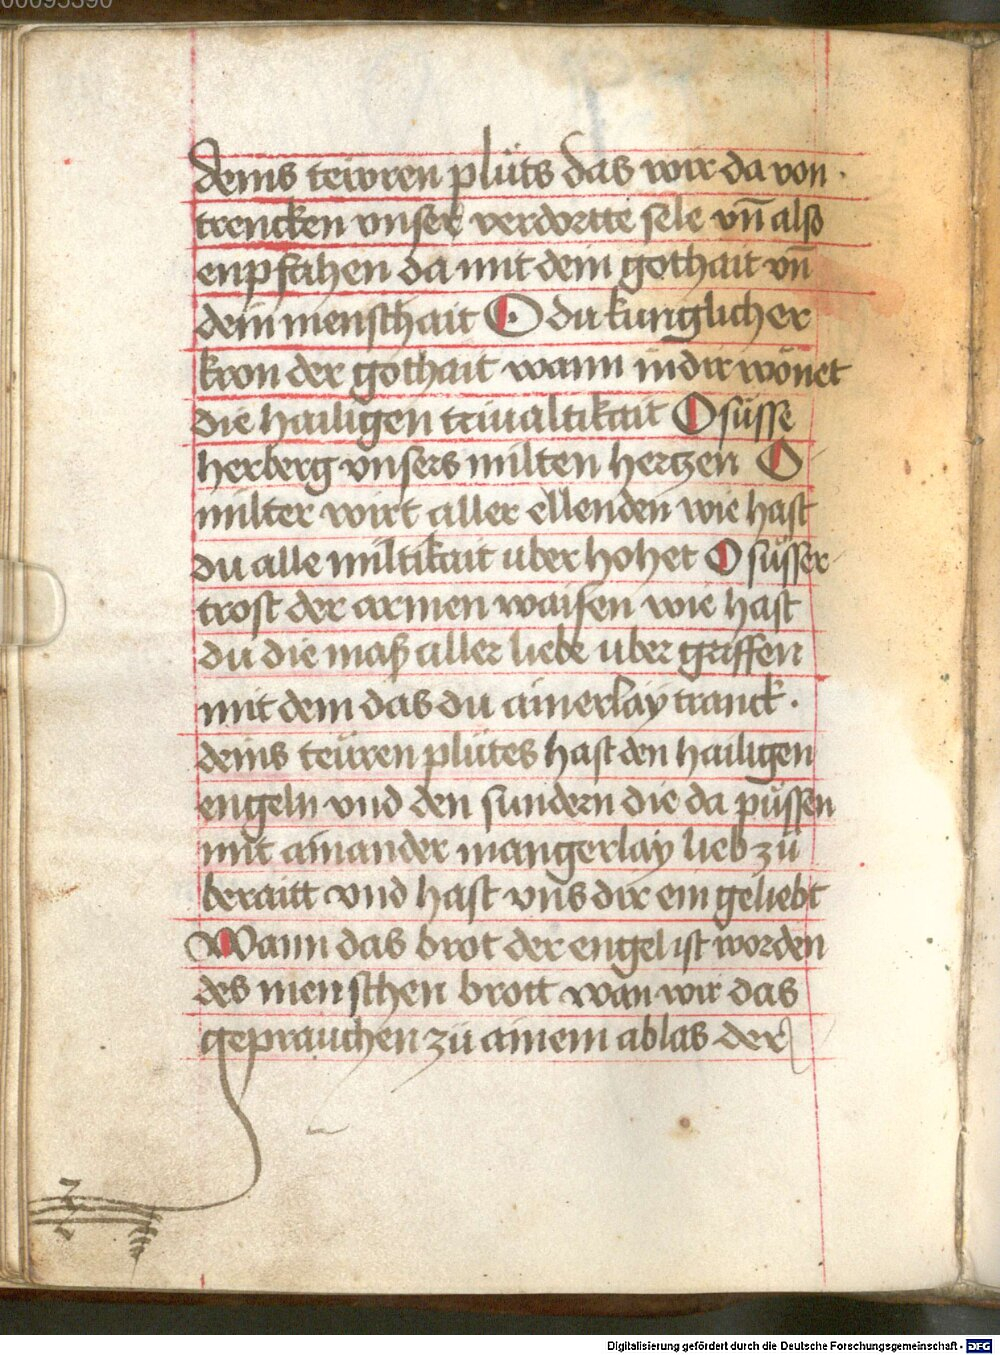 00095390
deins tewren plüts das wir da von ·
trencken vnser verdortte sele vn̄ also
enpfahen da mit dein gothait vn̄
dein menschait O du kunglicher
kron der gothait wann in dir wonet
die hailigen triualtikait O süsse
herberg vnsers milten hertzen O
milter wirt aller ellenden wie hast
du alle miltikait uber hohet O süsser
trost der armen waisen wie hast
du die maß aller liebe uber griffen
mit dem das du ainerlay tranck ·
deins teüren plütes hast den hailigen
engeln vnd den sundern die da püssen
mit ainander mangerlay lieb zü
beraitt vnd hast vns dir ein geliebt
Wann das brot der engel ist worden
des menschen brott wan wir das
geprauchen zü ainem ablas der
Digitalisierung gefördert durch die Deutsche Forschungsgemeinschaft - DFG